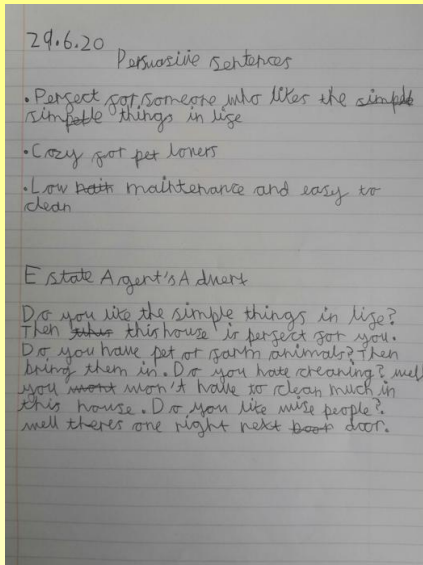 29.6.20
Persuasive sentences
• Perfect for someone who likes the simple
simple things in life
• Cozy for pet lovers
• Low maintenance and easy to
clean
Estate Agent's Advert
Do you like the simple things in life?
Then this house is perfect for you.
Do you have pet or farm animals? Then
bring them in. Do you hate cleaning? well
you won't have to clean much in
this house. Do you like wise people?
well theres one right next door.